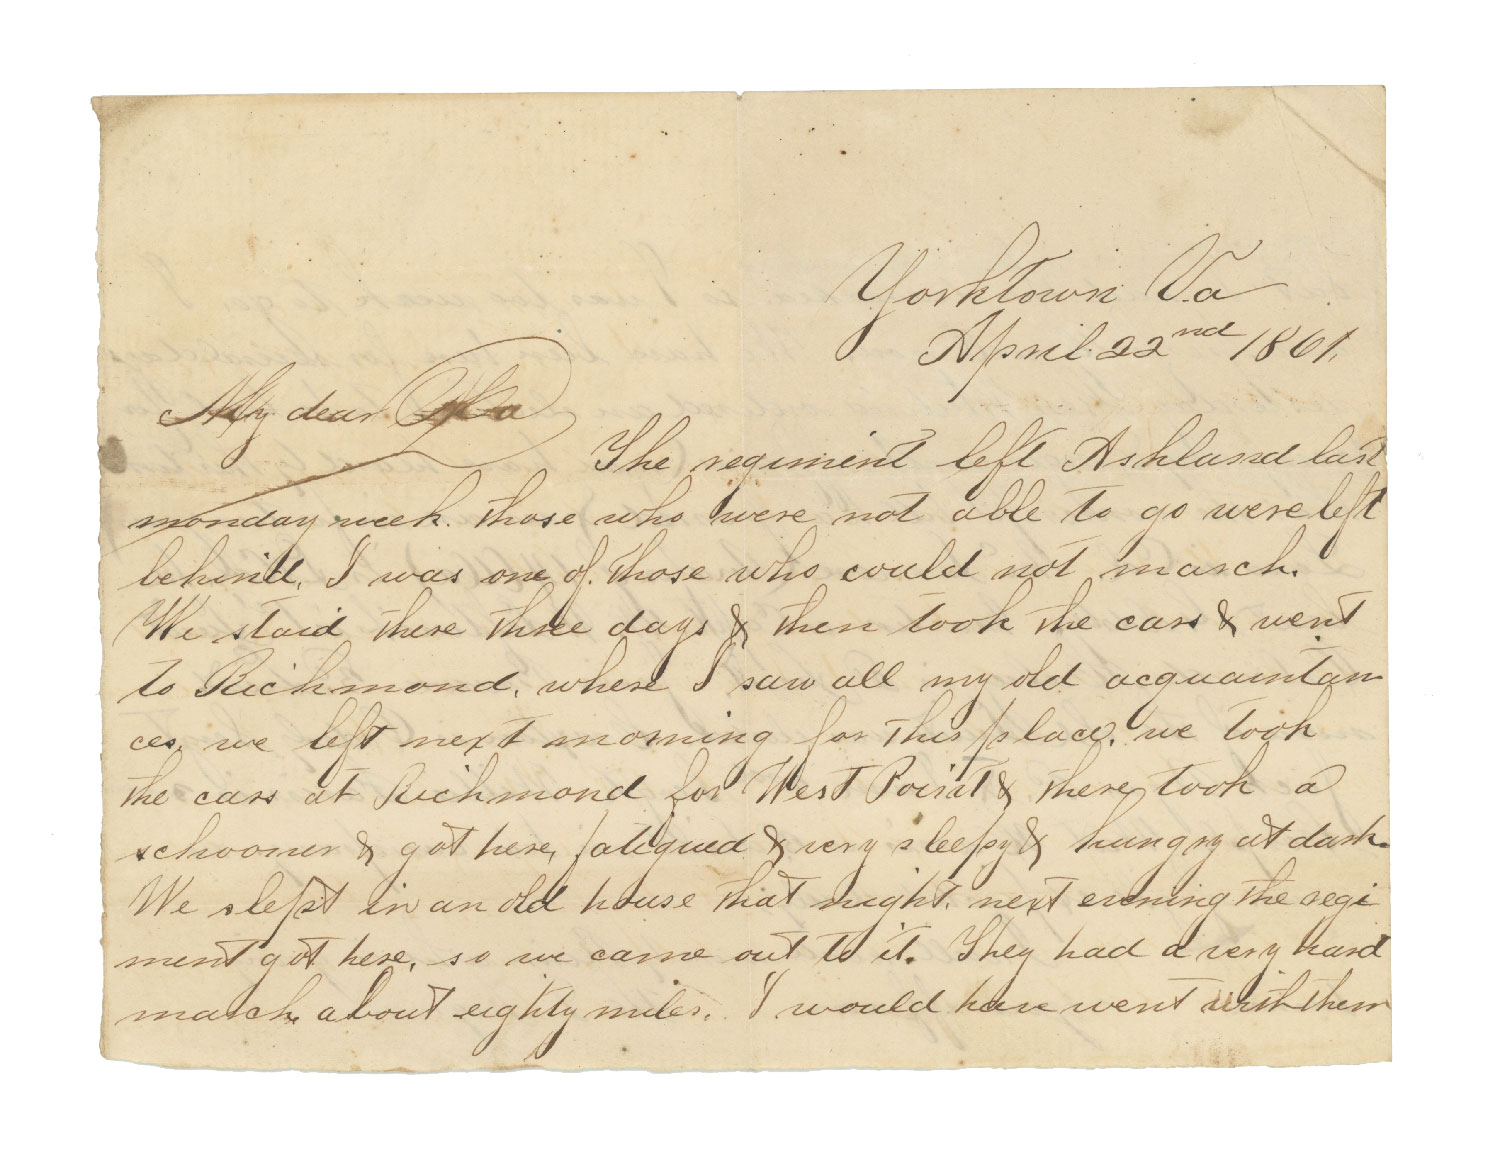 Yorktown Va
April 22nd 1861.
My dear Pa
The regiment left Ashland last
monday week. those who were not able to go were left
behind. I was one of those who could not march.
We staid there three days & then took the cars & went
to Richmond, where I saw all my old acquaintan
ces, we left next morning for this place. we took
the cars at Richmond for West Point & there took a
schooner & got here, fatigued & very sleepy & hungry at dark.
We slept in an old house that night. next evening the regi
ment got here, so we came out to it. They had a very hard
march. about eighty miles. I would have went with them